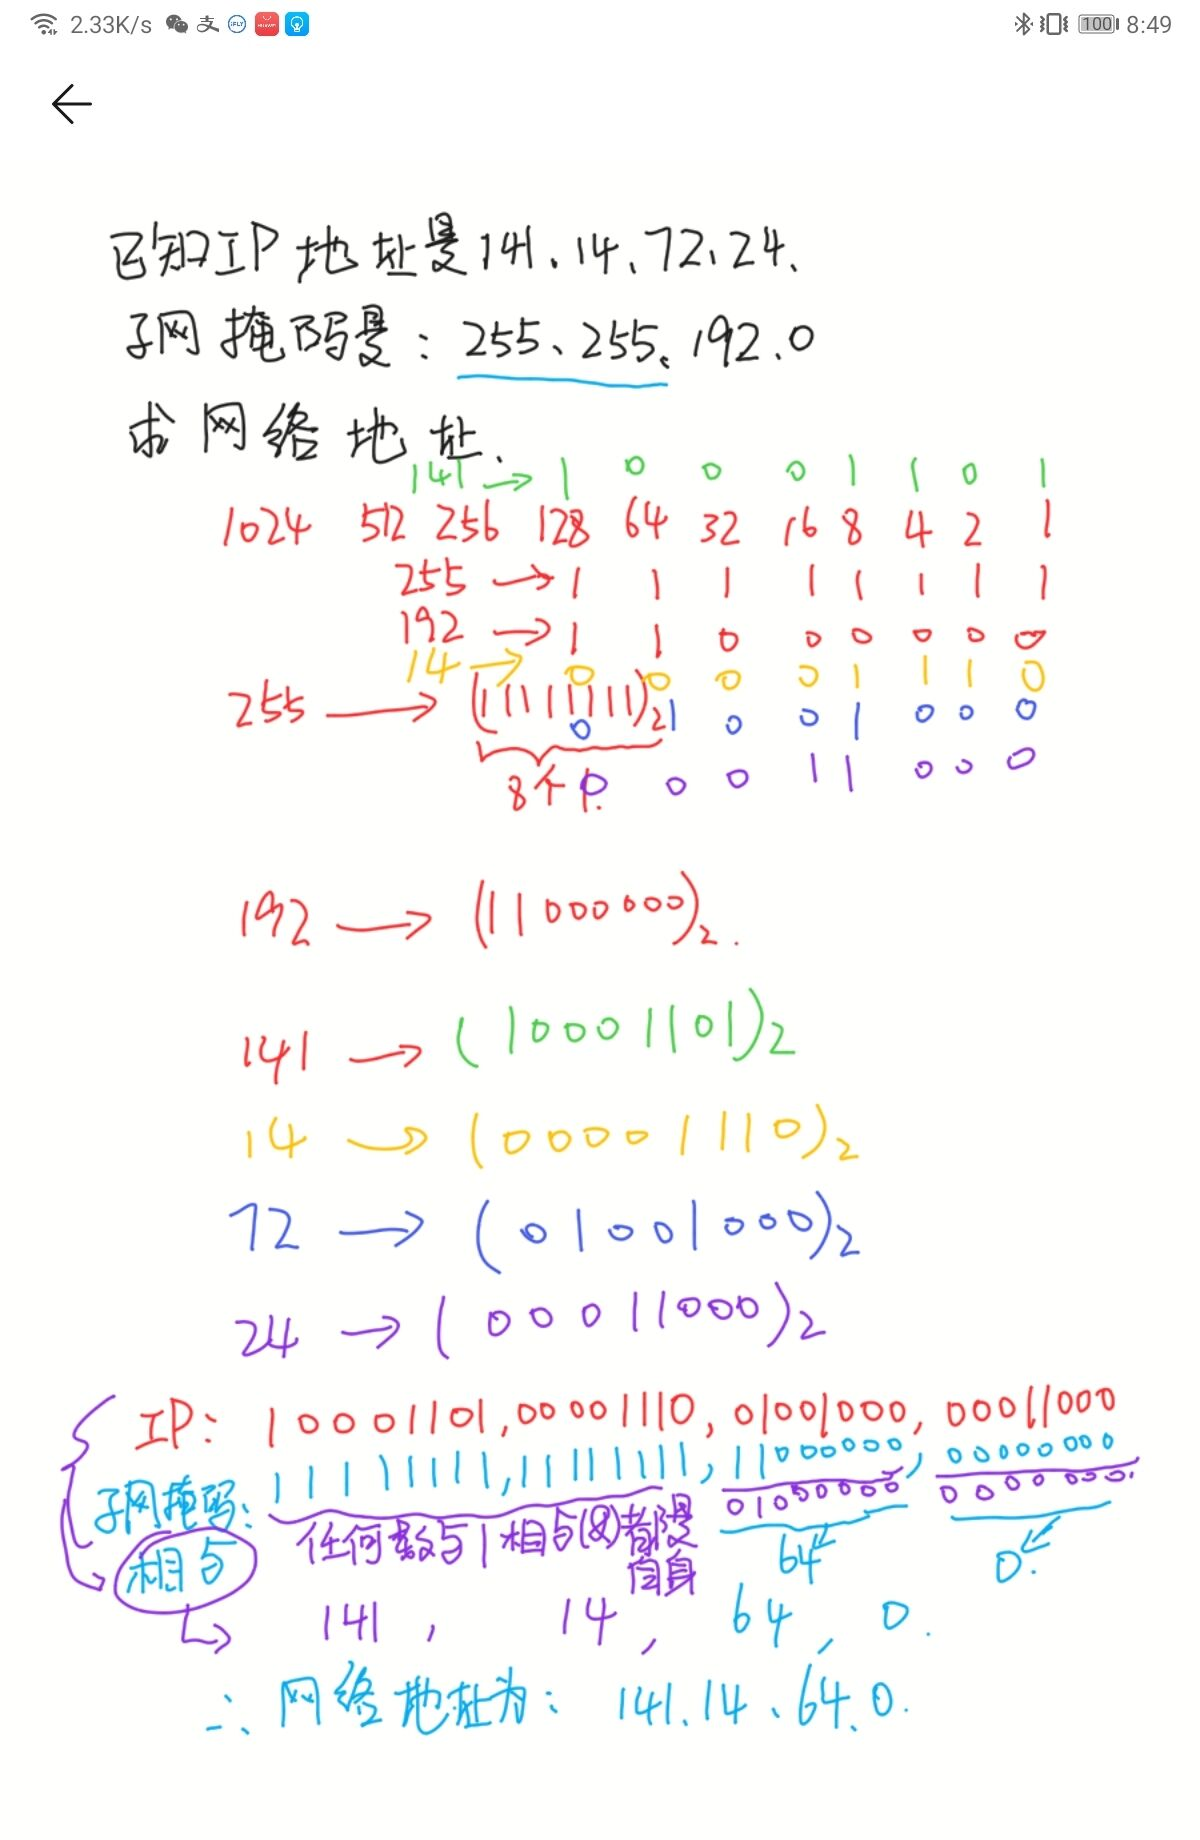 2.33K/s 支 iFLY HUAWEI 100 8:49
已知IP地址是141.14.72.24.
子网掩码是：255.255.192.0
求网络地址.
141→ 1 0 0 0 1 1 0 1
1024 512 256 128 64 32 16 8 4 2 1
255→ 1 1 1 1 1 1 1 1
192→ 1 1 0 0 0 0 0 0
14→ 0 0 0 0 1 1 1 0
255→ (11111111)2
0 1 0 0 1 0 0 0
8个1.
0 0 0 1 1 0 0 0
192→ (11000000)2.
141→ (10001101)2
14→ (00001110)2
72→ (01001000)2
24→ (00011000)2
IP: 10001101,00001110,01001000,00011000
子网掩码: 11111111,11111111,11000000,00000000
01000000 0000000.
相与 任何数与1相与(&)都是自身 64 0.
141, 14, 64, 0.
∴网络地址为: 141.14.64.0.